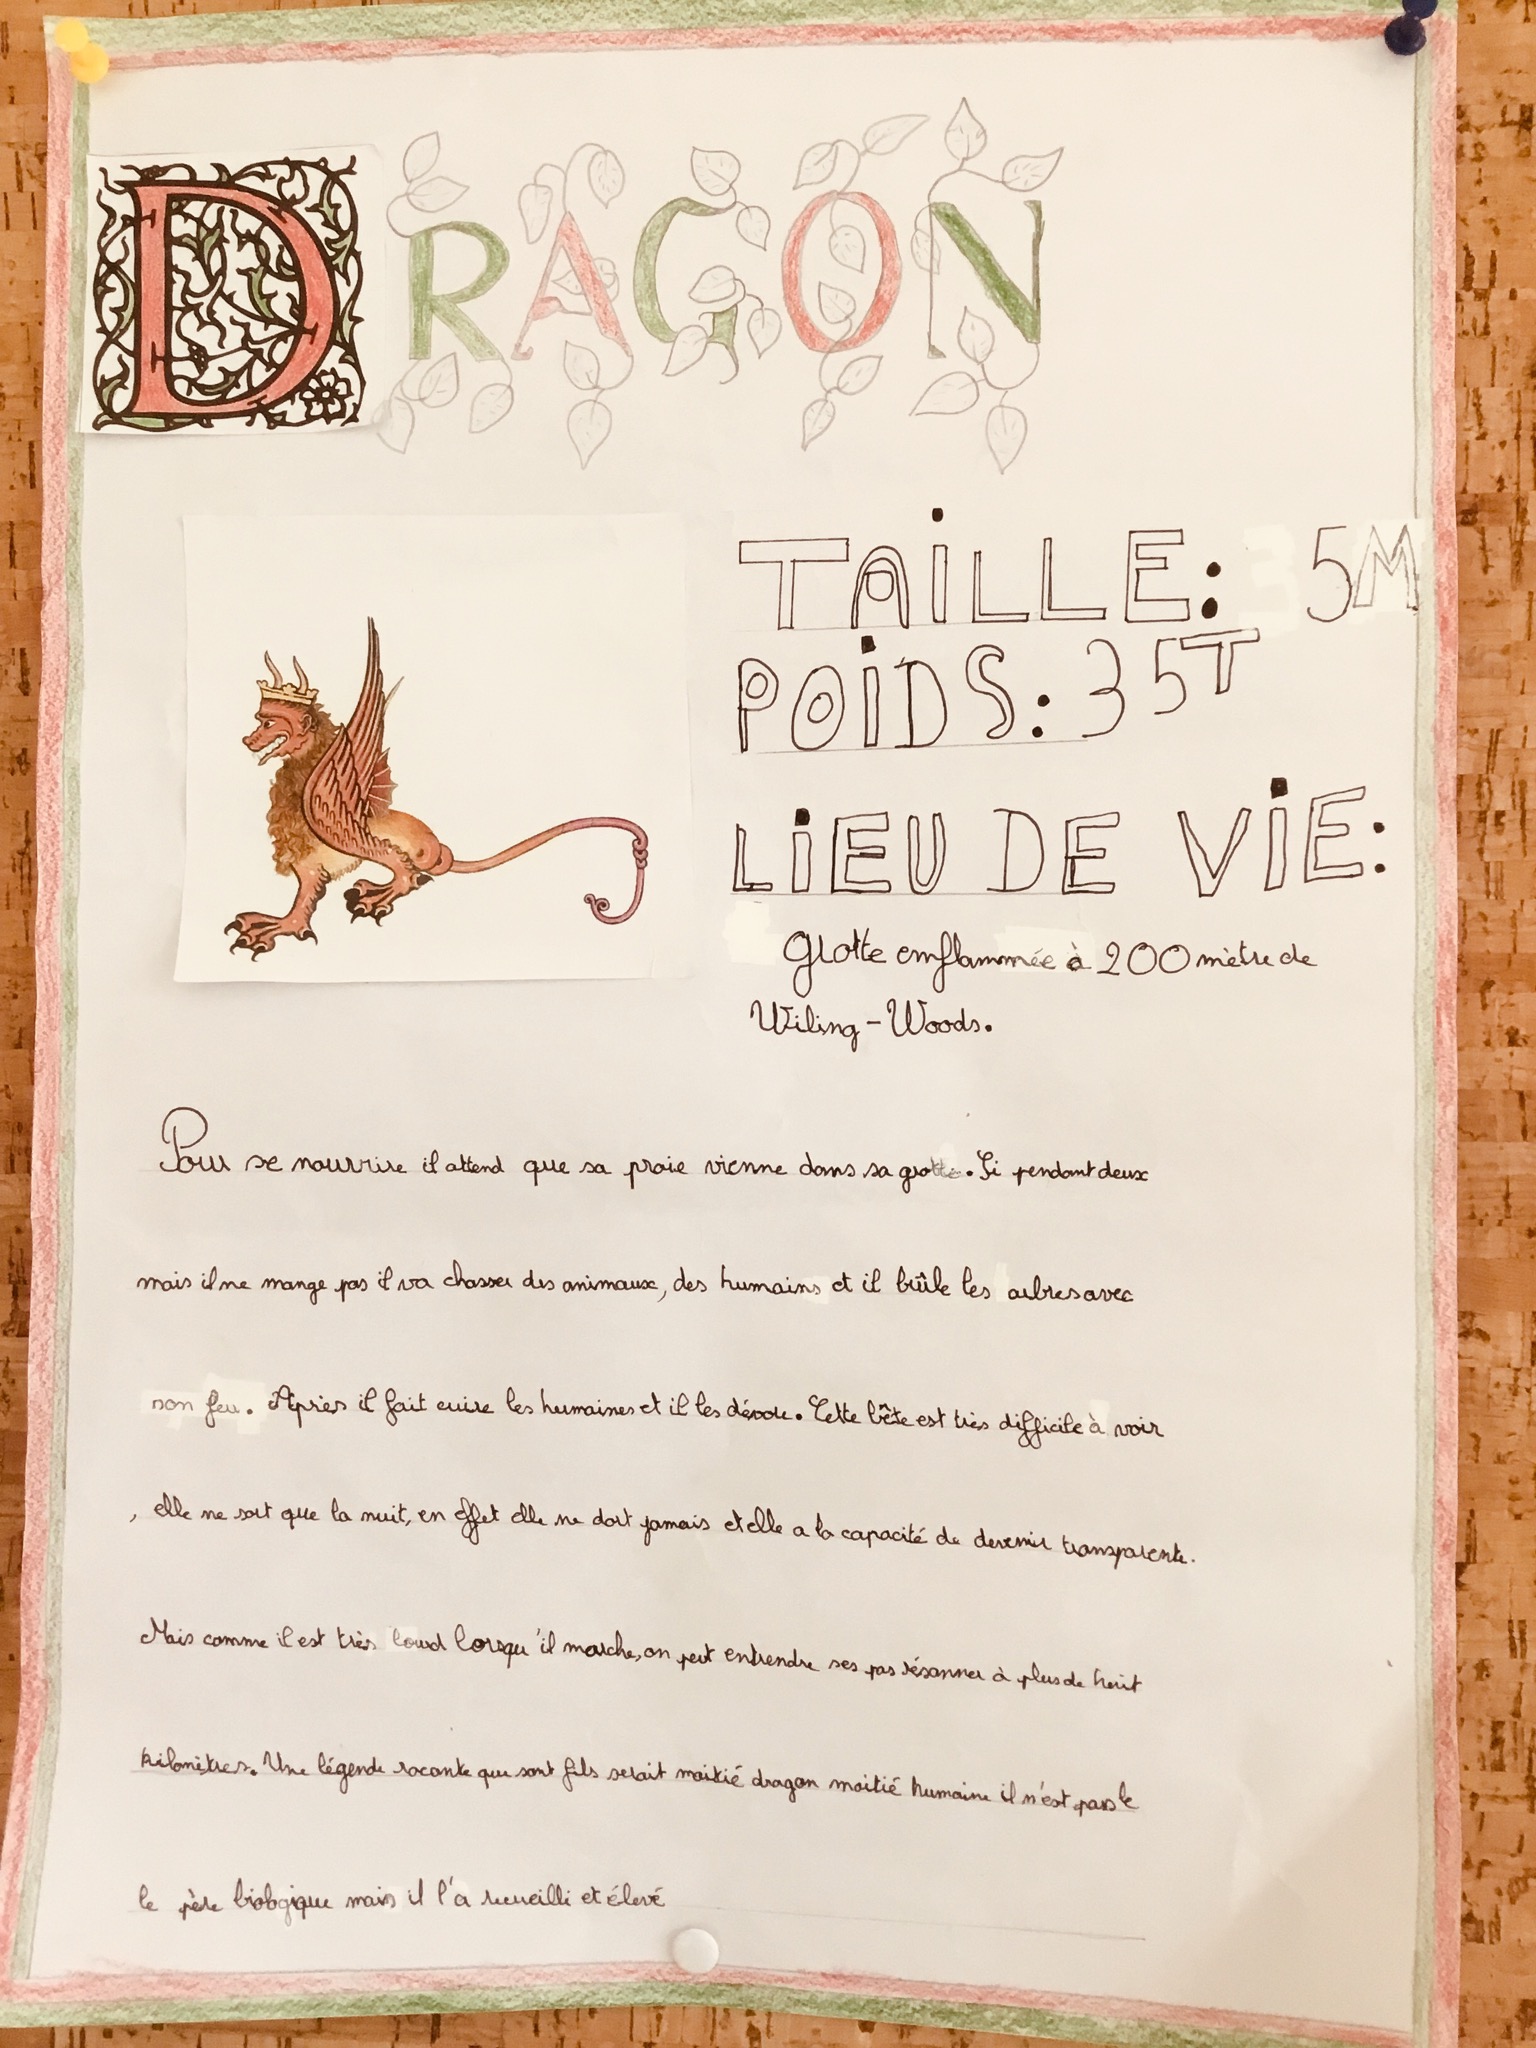 DRAGON
TAILLE: 5M
POIDS: 35T
LIEU DE VIE:
Grotte enflammée à 200 mètre de
Wiling-Woods.
Pour se nourrire il attend que sa proie vienne dans sa grotte. Si pendant deux
mais il ne mange pas il va chasser des animaux, des humains et il brûle les arbres avec
son feu. Après il fait cuire les humaines et il les dévore. Cette bête est très difficile à voir
, elle ne sort que la nuit, en effet elle ne dort jamais et elle a la capacité de devenir transparente.
Mais comme il est très lourd lorsqu'il marche, on peut entrendre ses pas résonner à plus de huit
kilomètres. Une légende raconte que sont fils serait moitié dragon moitié humaine il n'est pas le
le père biologique mais il l'a recueilli et élevé